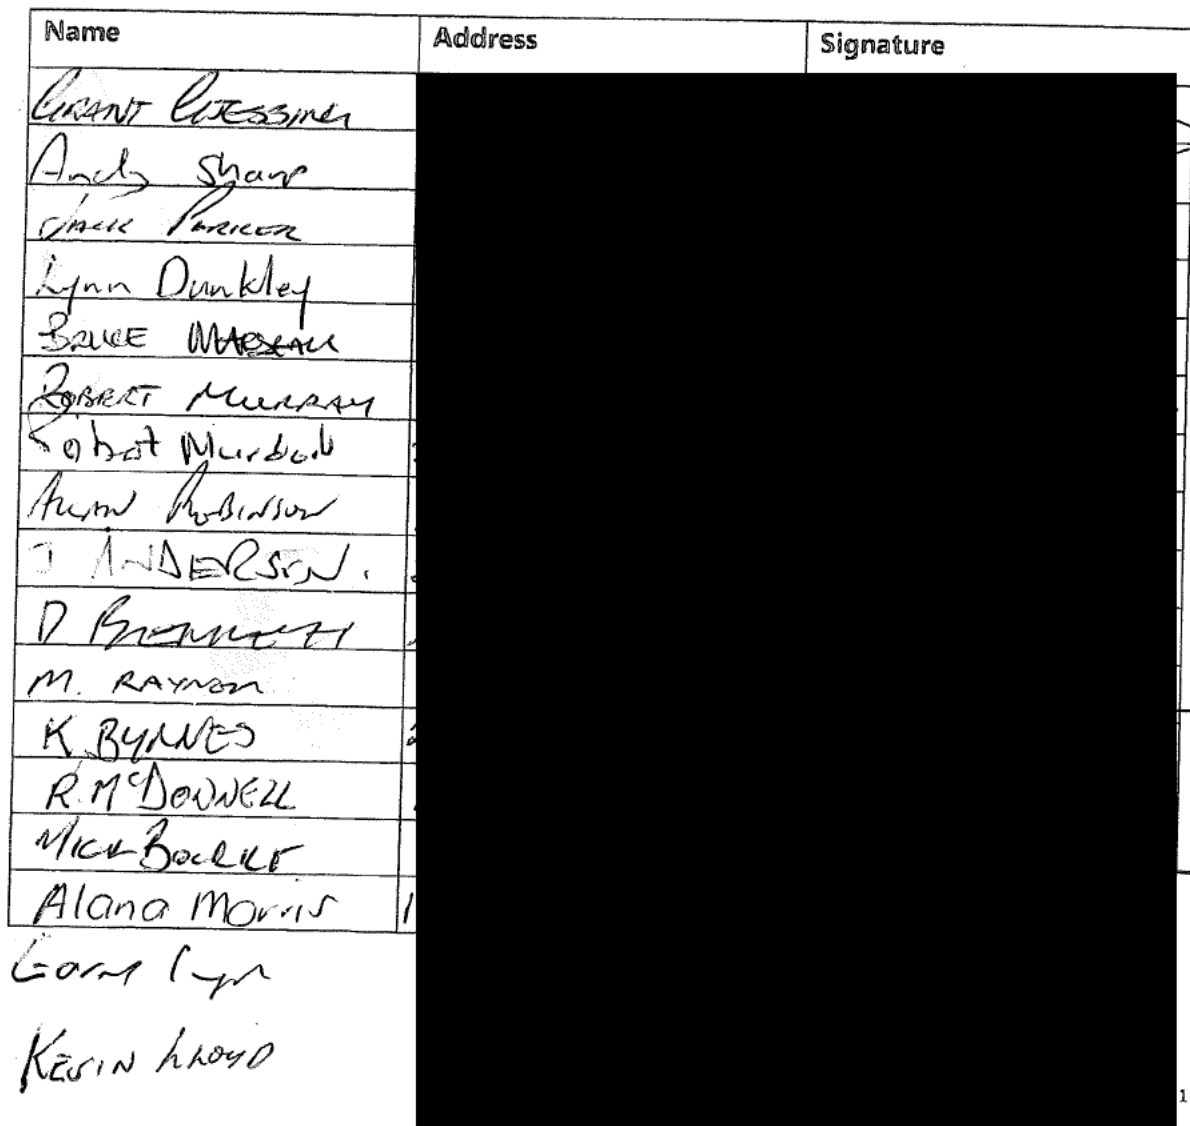 Name Address Signature
GRANT GJESSING
Andy Sharp
JACK PARKER
Lynn Dunkley
BRUCE
ROBERT MURRAY
Robert Murdoch
ALLAN ROBINSON
J ANDERSON.
D BENNETT
M. RAYNER
K BYRNES
R. McDONNELL
MICK BOURKE
Alana Morris
KEVIN LLOYD
1